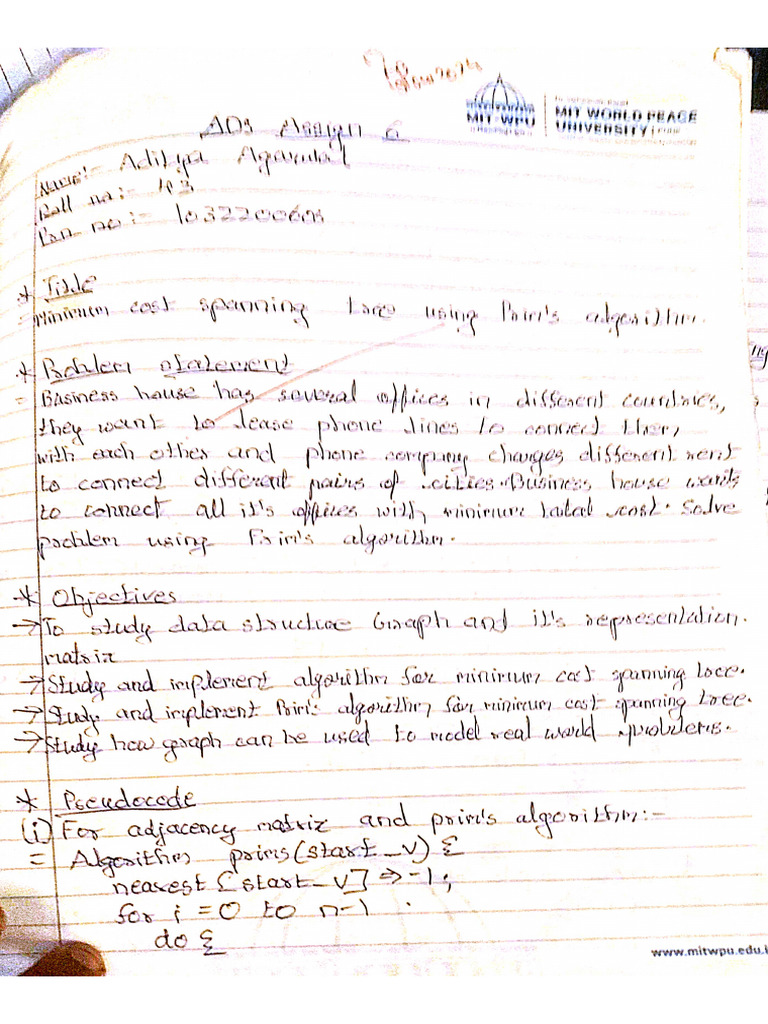 MIT-WPU
MIT WORLD PEACE
UNIVERSITY
ADS Assign 6
Name:- Aditya Agarwal
Roll no:- 43
Prn no:-
* Title
- Minimum cost spanning tree using Prim's algorithm.
* Problem statement
= Business house has several offices in different countries,
they want to lease phone lines to connect them
with each other and phone company charges different rent
to connect different pairs of cities. Business house wants
to connect all it's offices with minimum total cost. Solve
problem using Prim's algorithm.
* Objectives
→ To study data structure Graph and it's representation.
matrix
→ Study and implement algorithm for minimum cost spanning tree.
→ Study and implement Prim's algorithm for minimum cost spanning tree.
→ Study how graph can be used to model real world problems.
* Pseudocode
(i) For adjacency matrix and prim's algorithm:-
= Algorithm prims(start_v) {
nearest [start_v] => -1;
for i = 0 to n-1
do {
www.mitwpu.edu.i